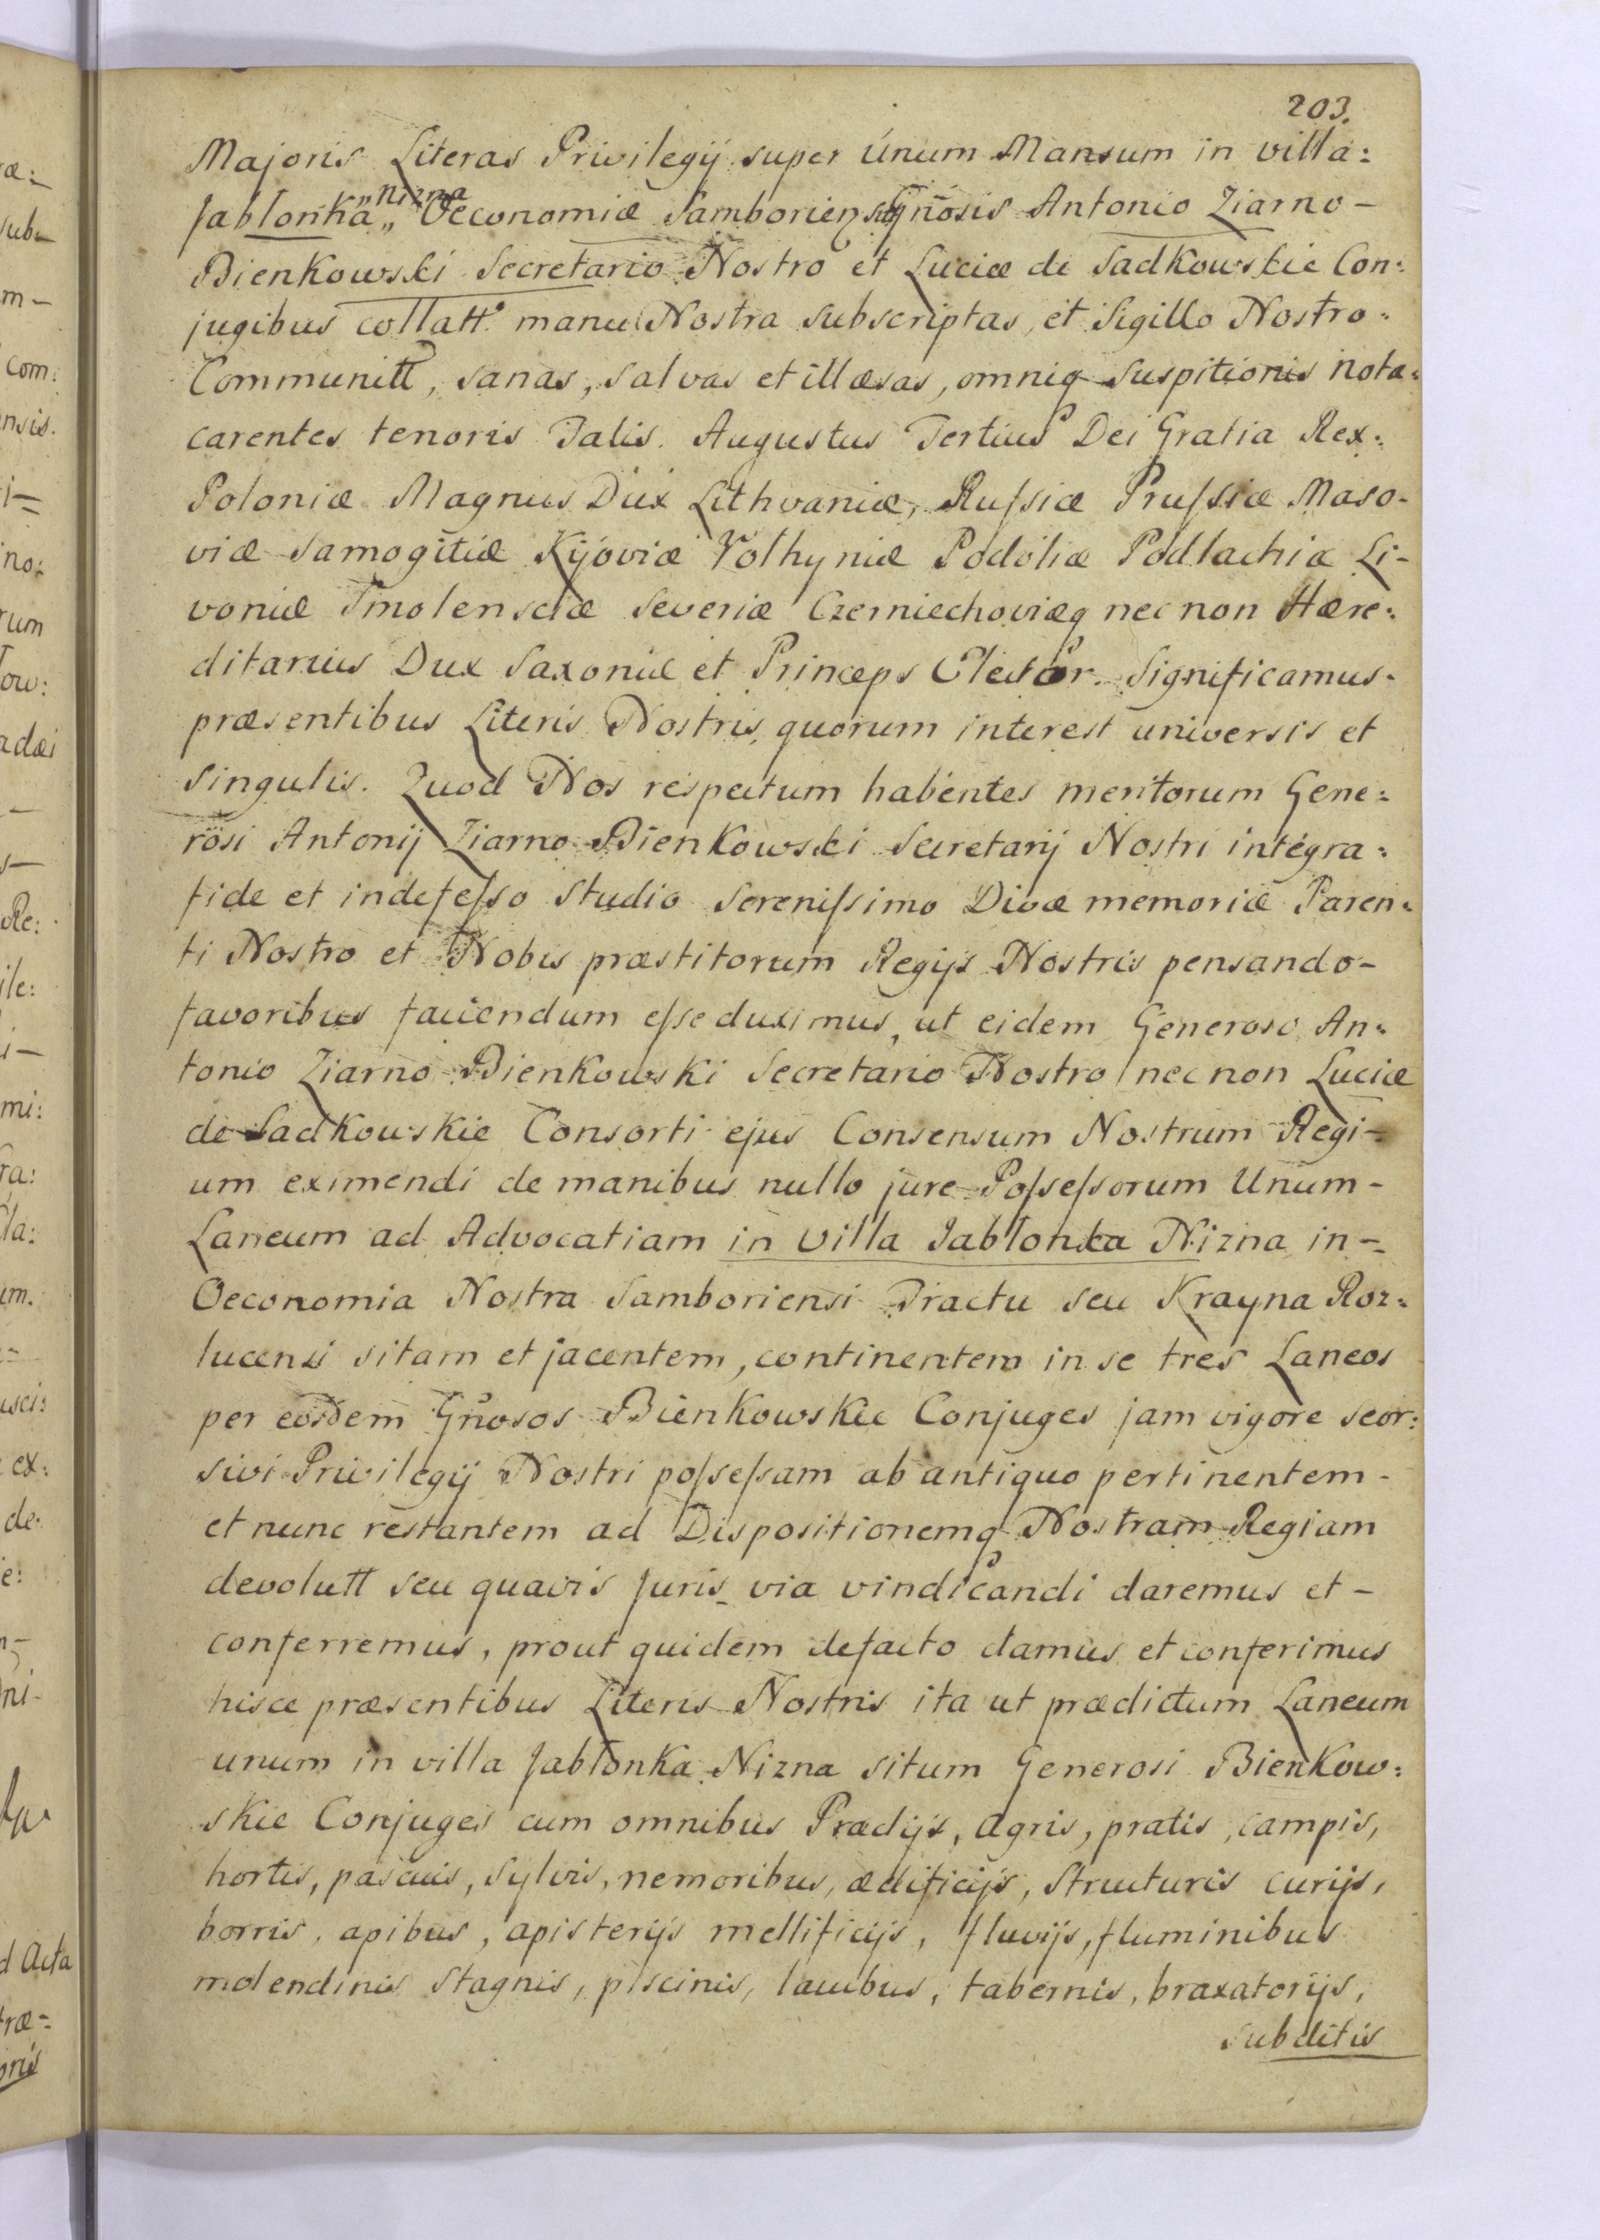 203.
Majoris Literas Privilegij super Unum Mansum in villa:
Jablonka „Nizna„ Oeconomiæ Samboriensi Gñosis Antonio Ziarno-
Bienkowski Secretario Nostro et Luciæ de Sadkowskie Con:
jugibus collatt. manu Nostra subscriptas, et Sigillo Nostro:
Communitt, sanas, salvas et illæsas, omniq suspitionis nota:
carentes tenoris Talis. Augustus Tertius Dei Gratia Rex:
Poloniæ Magnus Dux Lithvaniæ, Russiæ Prussiæ Maso-
viæ Samogitiæ Kijoviæ Volhyniæ Podoliæ Podlachiæ Li-
voniæ Smolensciæ Severiæ Czerniechoviæq nec non Hære:
ditarius Dux Saxoniæ et Princeps Elector. Significamus.
præsentibus Literis Nostris, quorum interest universis et
singulis. Quod Nos respectum habentes meritorum Gene:
rosi Antonij Ziarno Bienkowski Secretarij Nostri integra:
fide et indefesso studio Serenissimo Divæ memoriæ Paren:
ti Nostro et Nobis præstitorum Regijs Nostris pensando-
favoribus faciendum esse duximus, ut eidem Generoso An:
tonio Ziarno Bienkowski Secretario Nostro nec non Luciæ
de Sadkowskie Consorti ejus Consensum Nostrum Regi-
um eximendi de manibus nullo jure Possessorum Unum-
Laneum ad Advocatiam in Villa Jablonka Nizna in-
Oeconomia Nostra Samboriensi Tractu seu Krayna Roz:
lucensi sitam et jacentem, continentem in se tres Laneos
per eosdem Gñosos Bienkowskie Conjuges jam vigore seor:
sivi Privilegij Nostri possessam ab antiquo pertinentem-
et nunc restantem ad Dispositionemq Nostram Regiam
devolutt seu quavis Juris via vindicandi daremus et-
conferremus, prout quidem defacto damus et conferimus
hisce præsentibus Literis Nostris ita ut prædictum Laneum
unum in villa Jablonka Nizna situm Generosi Bienkow:
skie Conjuges cum omnibus Prædijs, agris, pratis, campis,
hortis, pascuis, sylvis, nemoribus, ædificijs, structuris curijs,
borris, apibus, apisterijs mellificijs, fluvijs, fluminibus
molendinis stagnis, piscinis, lacubus, tabernis, braxatorijs,
subditis